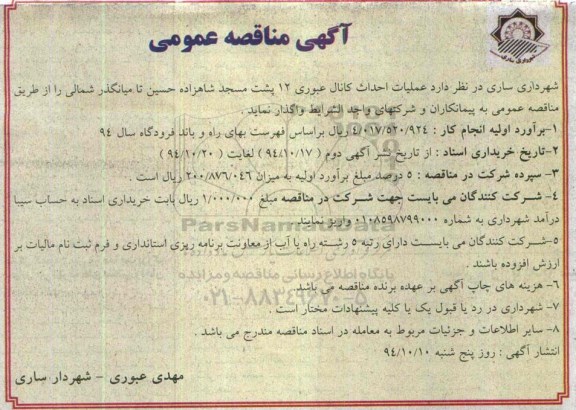 آگهی مناقصه عمومی
شهرداری ساری
شهرداری ساری در نظر دارد عملیات احداث کانال عبوری ۱۲ پشت مسجد شاهزاده حسین تا میانگذر شمالی را از طریق
مناقصه عمومی به پیمانکاران و شرکتهای واجد الشرایط واگذار نماید .
۱-برآورد اولیه انجام کار : ۴/۰۱۷/۵۲۰/۹۲۴ ریال براساس فهرست بهای راه و باند فرودگاه سال ۹۴
۲-تاریخ خریداری اسناد : از تاریخ نشر آگهی دوم ( ۹۴/۱۰/۱۷ ) لغایت ( ۹۴/۱۰/۲۰ )
۳- سپرده شرکت در مناقصه : ۵ درصد مبلغ برآورد اولیه به میزان ۲۰۰/۸۷۶/۰۴۶ ریال است .
۴- شرکت کنندگان می بایست جهت شرکت در مناقصه مبلغ ۱/۰۰۰/۰۰۰ ریال بابت خریداری اسناد به حساب سیبا
درآمد شهرداری به شماره ۰۱۰۸۵۹۸۷۹۹۰۰۰ واریز نمایند.
۵-شرکت کنندگان می بایست دارای رتبه ۵ رشته راه یا آب از معاونت برنامه ریزی استانداری و فرم ثبت نام مالیات بر
ارزش افزوده باشند .
۶- هزینه های چاپ آگهی بر عهده برنده مناقصه می باشد.
۷- شهرداری در رد یا قبول یک یا کلیه پیشنهادات مختار است .
۸- سایر اطلاعات و جزئیات مربوط به معامله در اسناد مناقصه مندرج می باشد .
انتشار آگهی : روز پنج شنبه ۹۴/۱۰/۱۰
مهدی عبوری - شهردار ساری
ParsNamadData
پایگاه اطلاع رسانی مناقصه و مزایده
۰۲۱-۸۸۳۴۹۶۷۰-۵